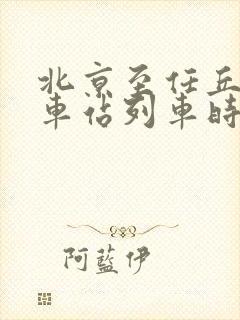 北京至任丘
車站列車時
阿藍伊